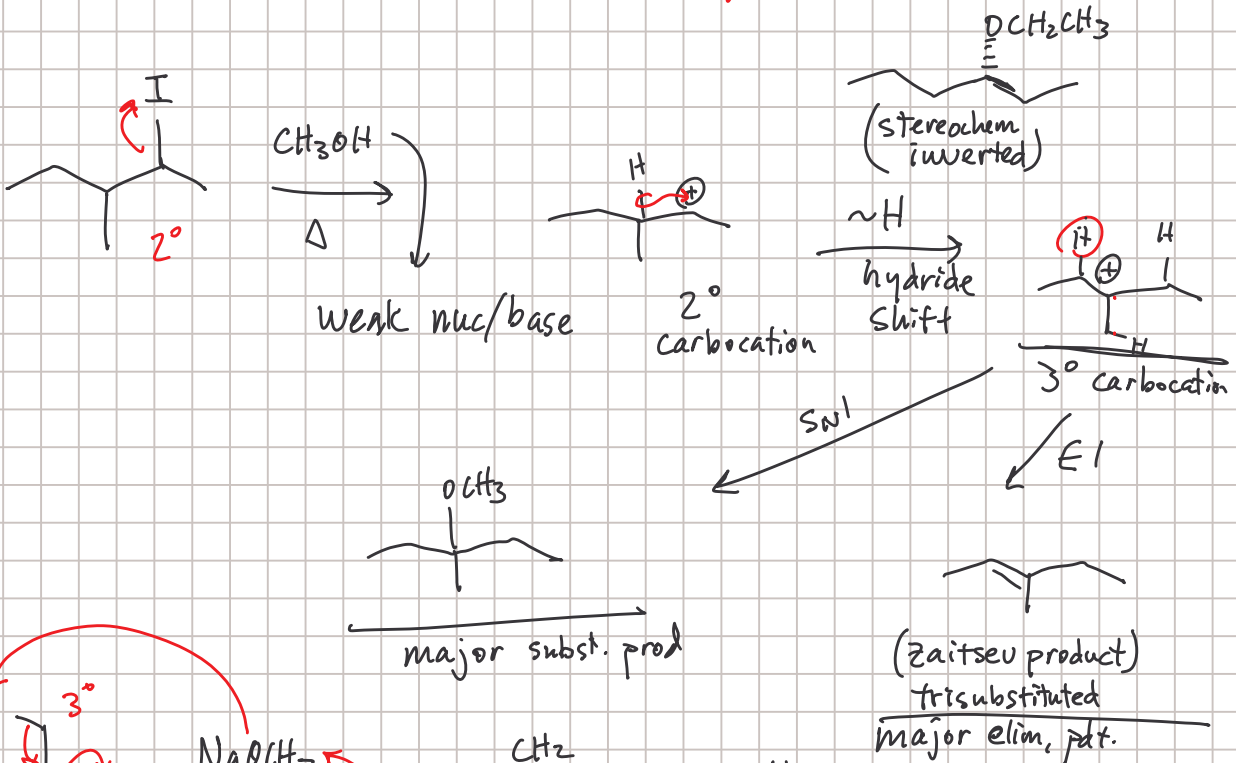 OCH2CH3
(stereochem
inverted)
I
CH3OH
Δ
2°
weak nuc/base
H
+
2°
carbocation
~H
hydride
shift
H
+
H
H
3° carbocation
SN1
E1
OCH3
major subst. prod
(Zaitsev product)
trisubstituted
major elim. pdt.
3°
CH2